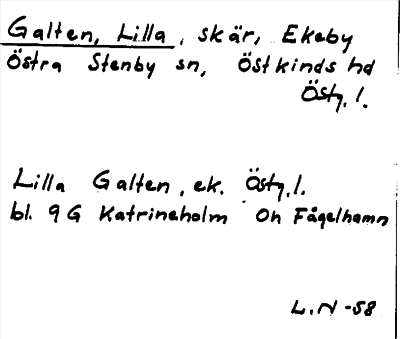 Galten, Lilla, skär, Ekeby
Östra Stenby sn, Östkinds hd
Östg. l.
Lilla Galten, ek. Östg. l.
bl. 9 G Katrineholm Oh Fågelhamn
L. N -58